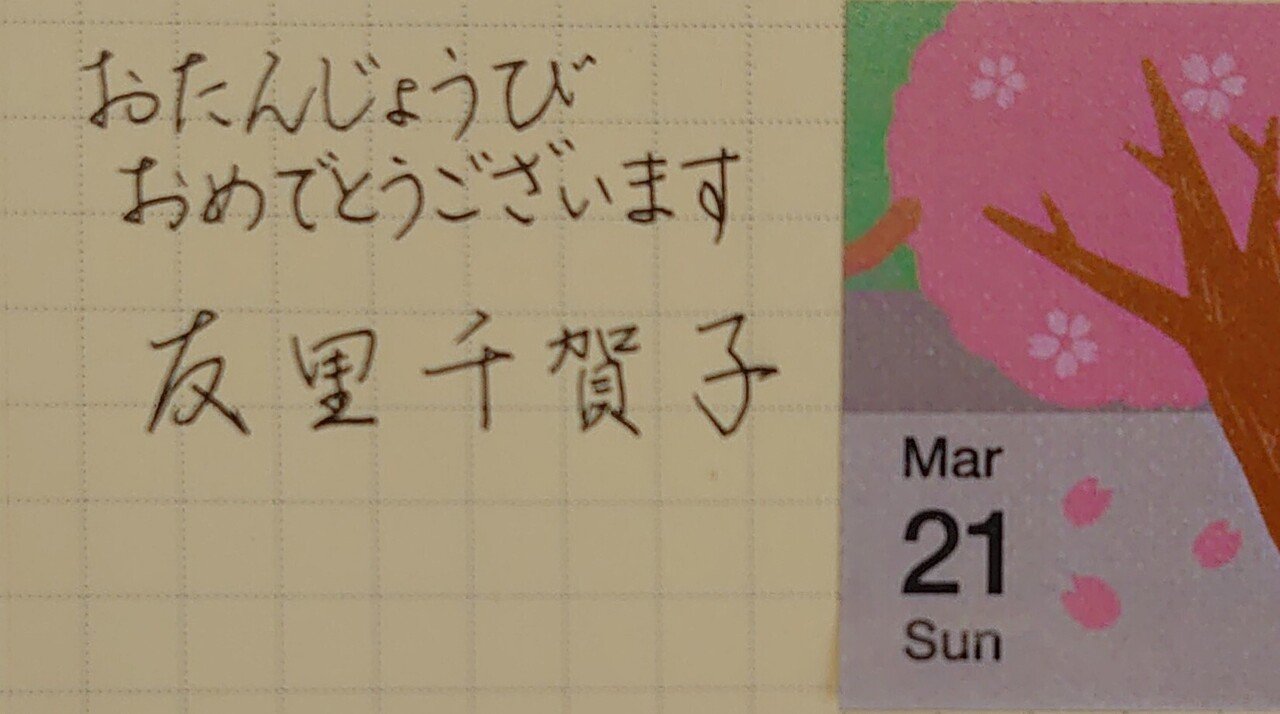 おたんじょうび
おめでとうございます
友里千賀子
Mar
21
Sun